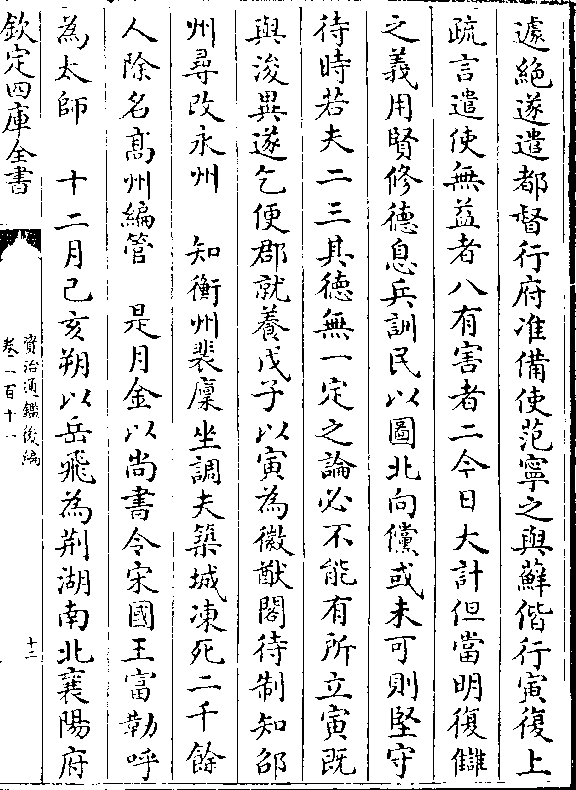 遽絶遂遣都督行府准備使范寧之與蘇偕行寅復上
疏言遣使無益者八有害者二今日大計但當明復讎
之義用賢修徳息兵訓民以圖北向儻或未可則堅守
待時若夫二三其徳無一定之論必不能有所立寅既
與浚異遂乞便郡就養戊子以寅為徽猷閣待制知邵
州尋改永州　知衡州裴廩坐調夫築城凍死二千餘
人除名髙州編管　是月金以尚書令宋國王富勒呼
為太師　十二月己亥朔以岳飛為荆湖南北襄陽府
欽定四庫全書
資治通鑑後編
卷一百十一
十二